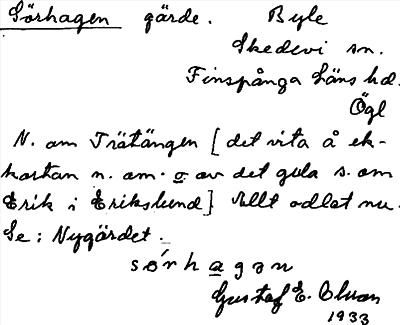 Sörhagen gärde. Byle
Skedevi sn.
Finspånga Läns hd.
Ögl
N. om Trätängen [det vita å ek-
kartan n. om. o av det gula s. om
Erik i Erikslund] Allt odlat nu.
Se: Nygärdet.
sǿrhagən
Gustaf E. Clvan
1933